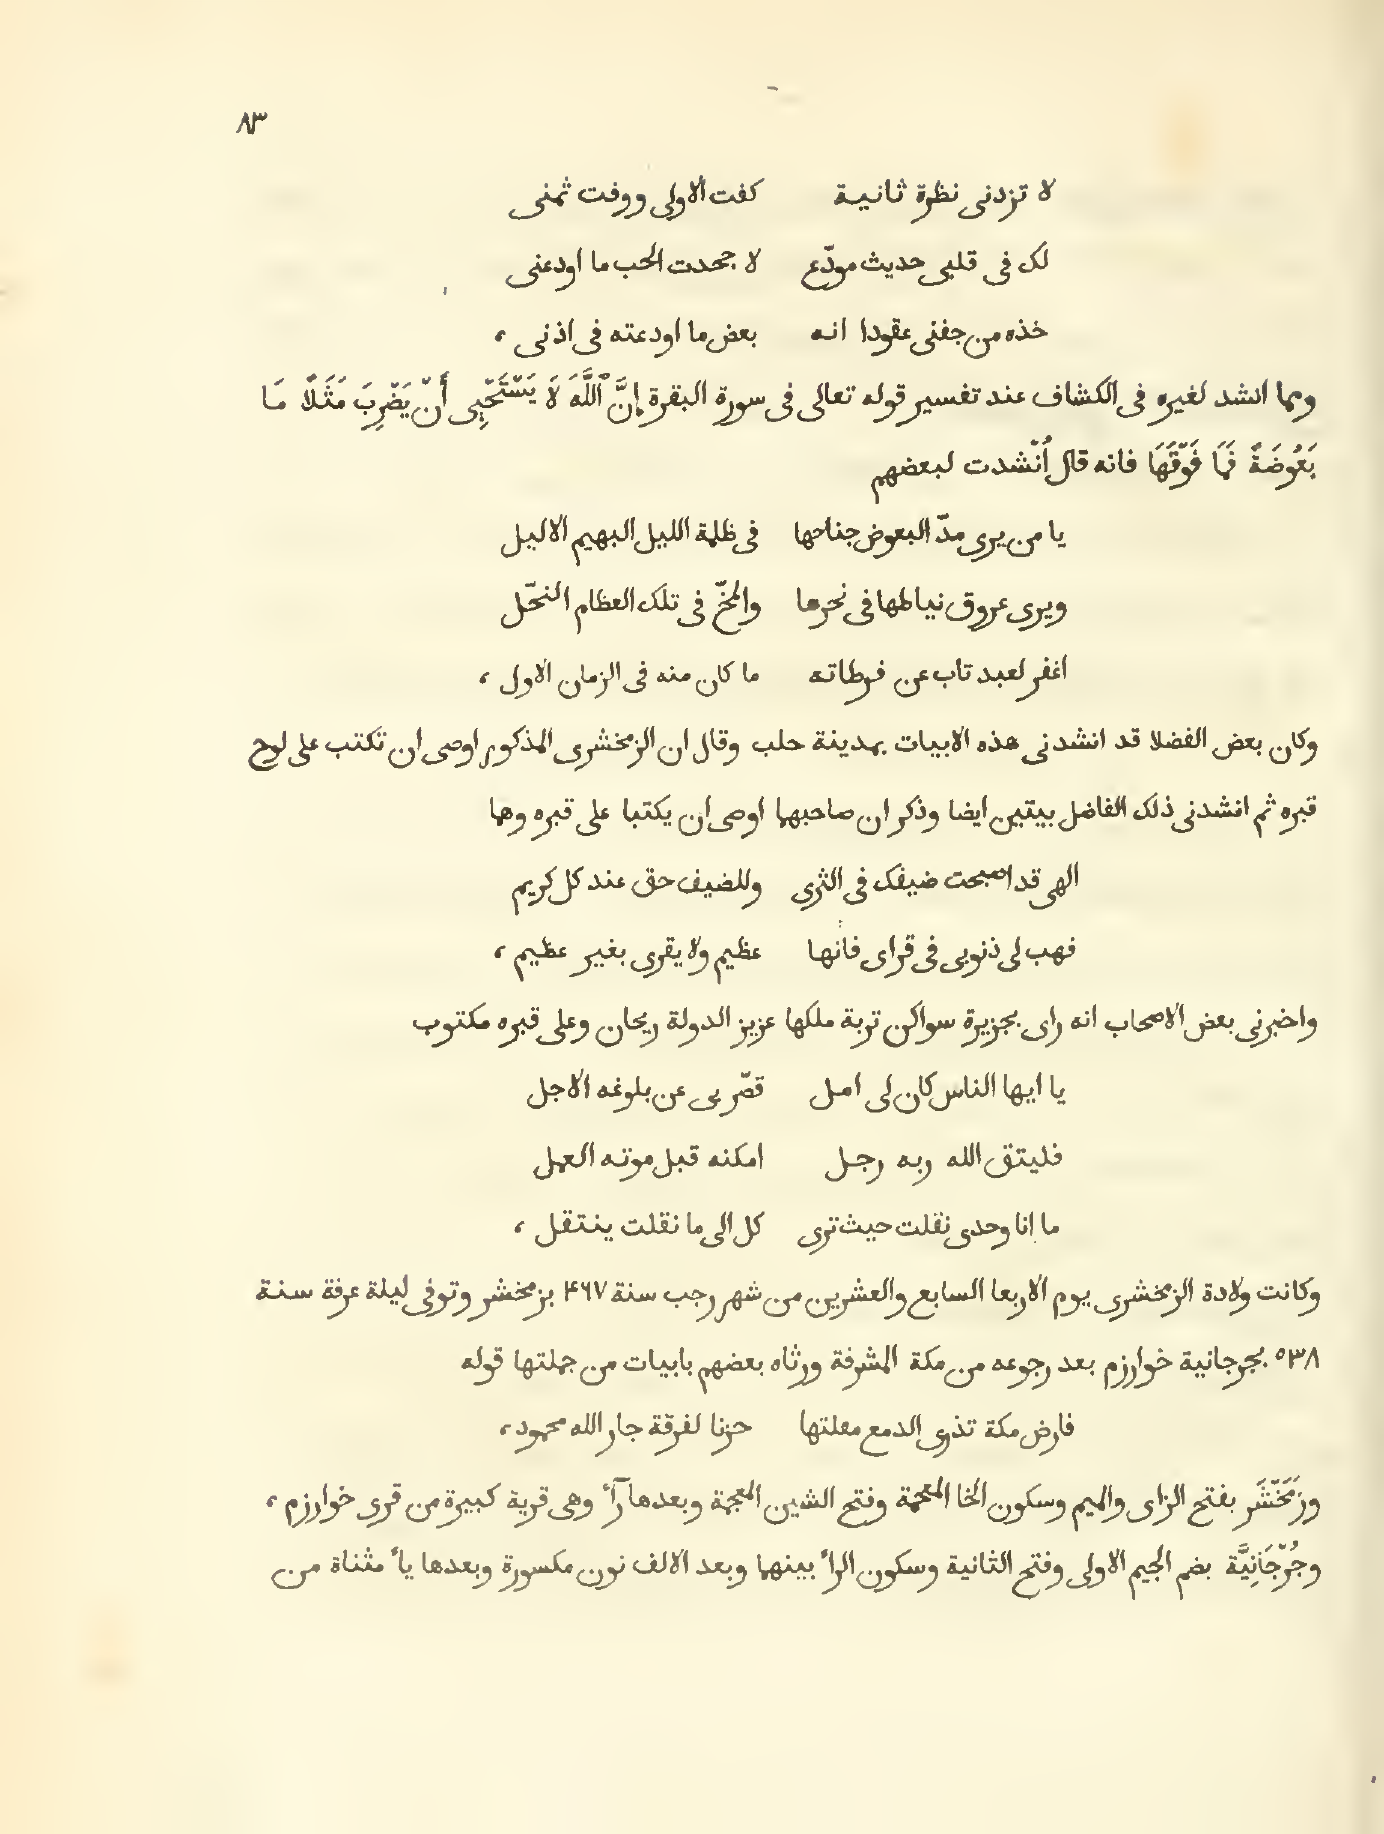 ٨٣
لا تزدنى نظرة ثانية كفت الاولى ووفت ثمنى
لك فى قلبى حديث مودّع لا جحدت الحب ما اودعنى
خذه من جفنى عقودا انه بعض ما اودعته فى اذنى ،
ومما انشد لغيره فى الكشاف عند تفسير قوله تعالى فى سورة البقرة إِنَّ ٱللَّهَ لَا يَسْتَحْيِى أَنْ يَضْرِبَ مَثَلًا مَا
بَعُوضَةً فَمَا فَوْقَهَا فانه قال أُنْشدت لبعضهم
يا من يرى مدّ البعوض جناحها فى ظلمة الليل البهيم الاليل
ويرى عروق نياطها فى نحرها والمخّ فى تلك العظام النحّل
اغفر لعبد تاب عن فرطاته ما كان منه فى الزمان الاول ،
وكان بعض الفضلا قد انشدنى هذه الابيات بمدينة حلب وقال ان الزمخشرى المذكور اوصى ان تكتب على لوح
قبره ثم انشدنى ذلك الفاضل بيتين ايضا وذكر ان صاحبهما اوصى ان يكتبا على قبره وهما
الهى قد اصبحت ضيفك فى الثرى وللضيف حق عند كل كريم
فهب لى ذنوبى فى قراى فانها عظيم ولا يقرى بغير عظيم ،
واخبرنى بعض الاصحاب انه راى بجزيرة سواكن تربة ملكها عزيز الدولة ريحان وعلى قبره مكتوب
يا ايها الناس كان لى امل قصّر بى عن بلوغه الاجل
فليتق الله ربه رجل امكنه قبل موته العمل
ما انا وحدى نقلت حيث ترى كل الى ما نقلت ينتقل ،
وكانت ولادة الزمخشرى يوم الاربعا السابع والعشرين من شهر رجب سنة ۴٦٧ بزمخشر وتوفى ليلة عرفة سنة
٥٣٨ بجرجانية خوارزم بعد رجوعه من مكة المشرفة ورثاه بعضهم بابيات من جملتها قوله
فارض مكة تذرى الدمع مقلتها حزنا لفرقة جار الله محمود ،
وزَمَخْشَر بفتح الزاى والميم وسكون الخا المعجمة وفتح الشين المعجمة وبعدها رآء وهى قرية كبيرة من قرى خوارزم ،
وجُرْجَانِيَّة بضم الجيم الاولى وفتح الثانية وسكون الراء بينهما وبعد الالف نون مكسورة وبعدها ياء مثناة من